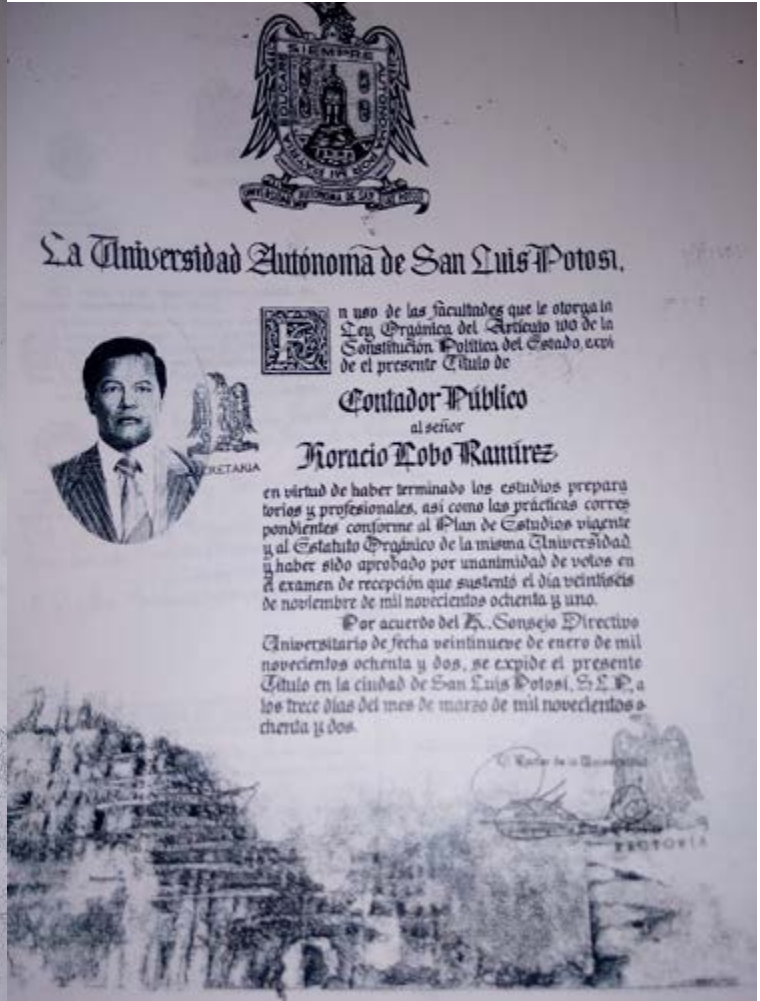 SIEMPRE AUTONOMA
POR MI PATRIA EDUCARE
UNIVERSIDAD AUTONOMA DE SAN LUIS POTOSI
La Universidad Autónoma de San Luis Potosí,
En uso de las facultades que le otorga la
Ley Orgánica del Artículo 100 de la
Constitución Política del Estado, expi
de el presente Título de
Contador Público
al señor
Horacio Lobo Ramírez
SECRETARIA
en virtud de haber terminado los estudios prepara
torios y profesionales, así como las prácticas corres
pondientes conforme al Plan de Estudios vigente
y al Estatuto Orgánico de la misma Universidad
y haber sido aprobado por unanimidad de votos en
el examen de recepción que sustentó el día veintiseis
de noviembre de mil novecientos ochenta y uno.
Por acuerdo del H. Consejo Directivo
Universitario de fecha veintinueve de enero de mil
novecientos ochenta y dos, se expide el presente
Título en la ciudad de San Luis Potosí, S.L.P., a
los trece días del mes de marzo de mil novecientos o
chenta y dos.
El Rector de la Universidad
RECTORIA